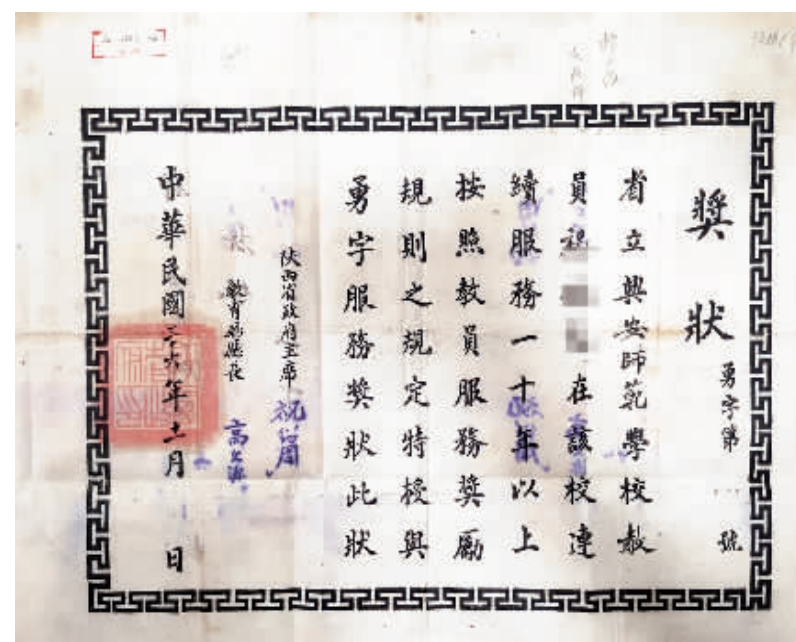 獎狀
勇字第 號
省立興安師範學校教
員 在該校連
續服務一十年以上
按照教員服務獎勵
規則之規定特授與
勇字服務獎狀此狀
陝西省政府主席 祝紹周
教育廳廳長 高文源
中華民國三十六年十一月 日